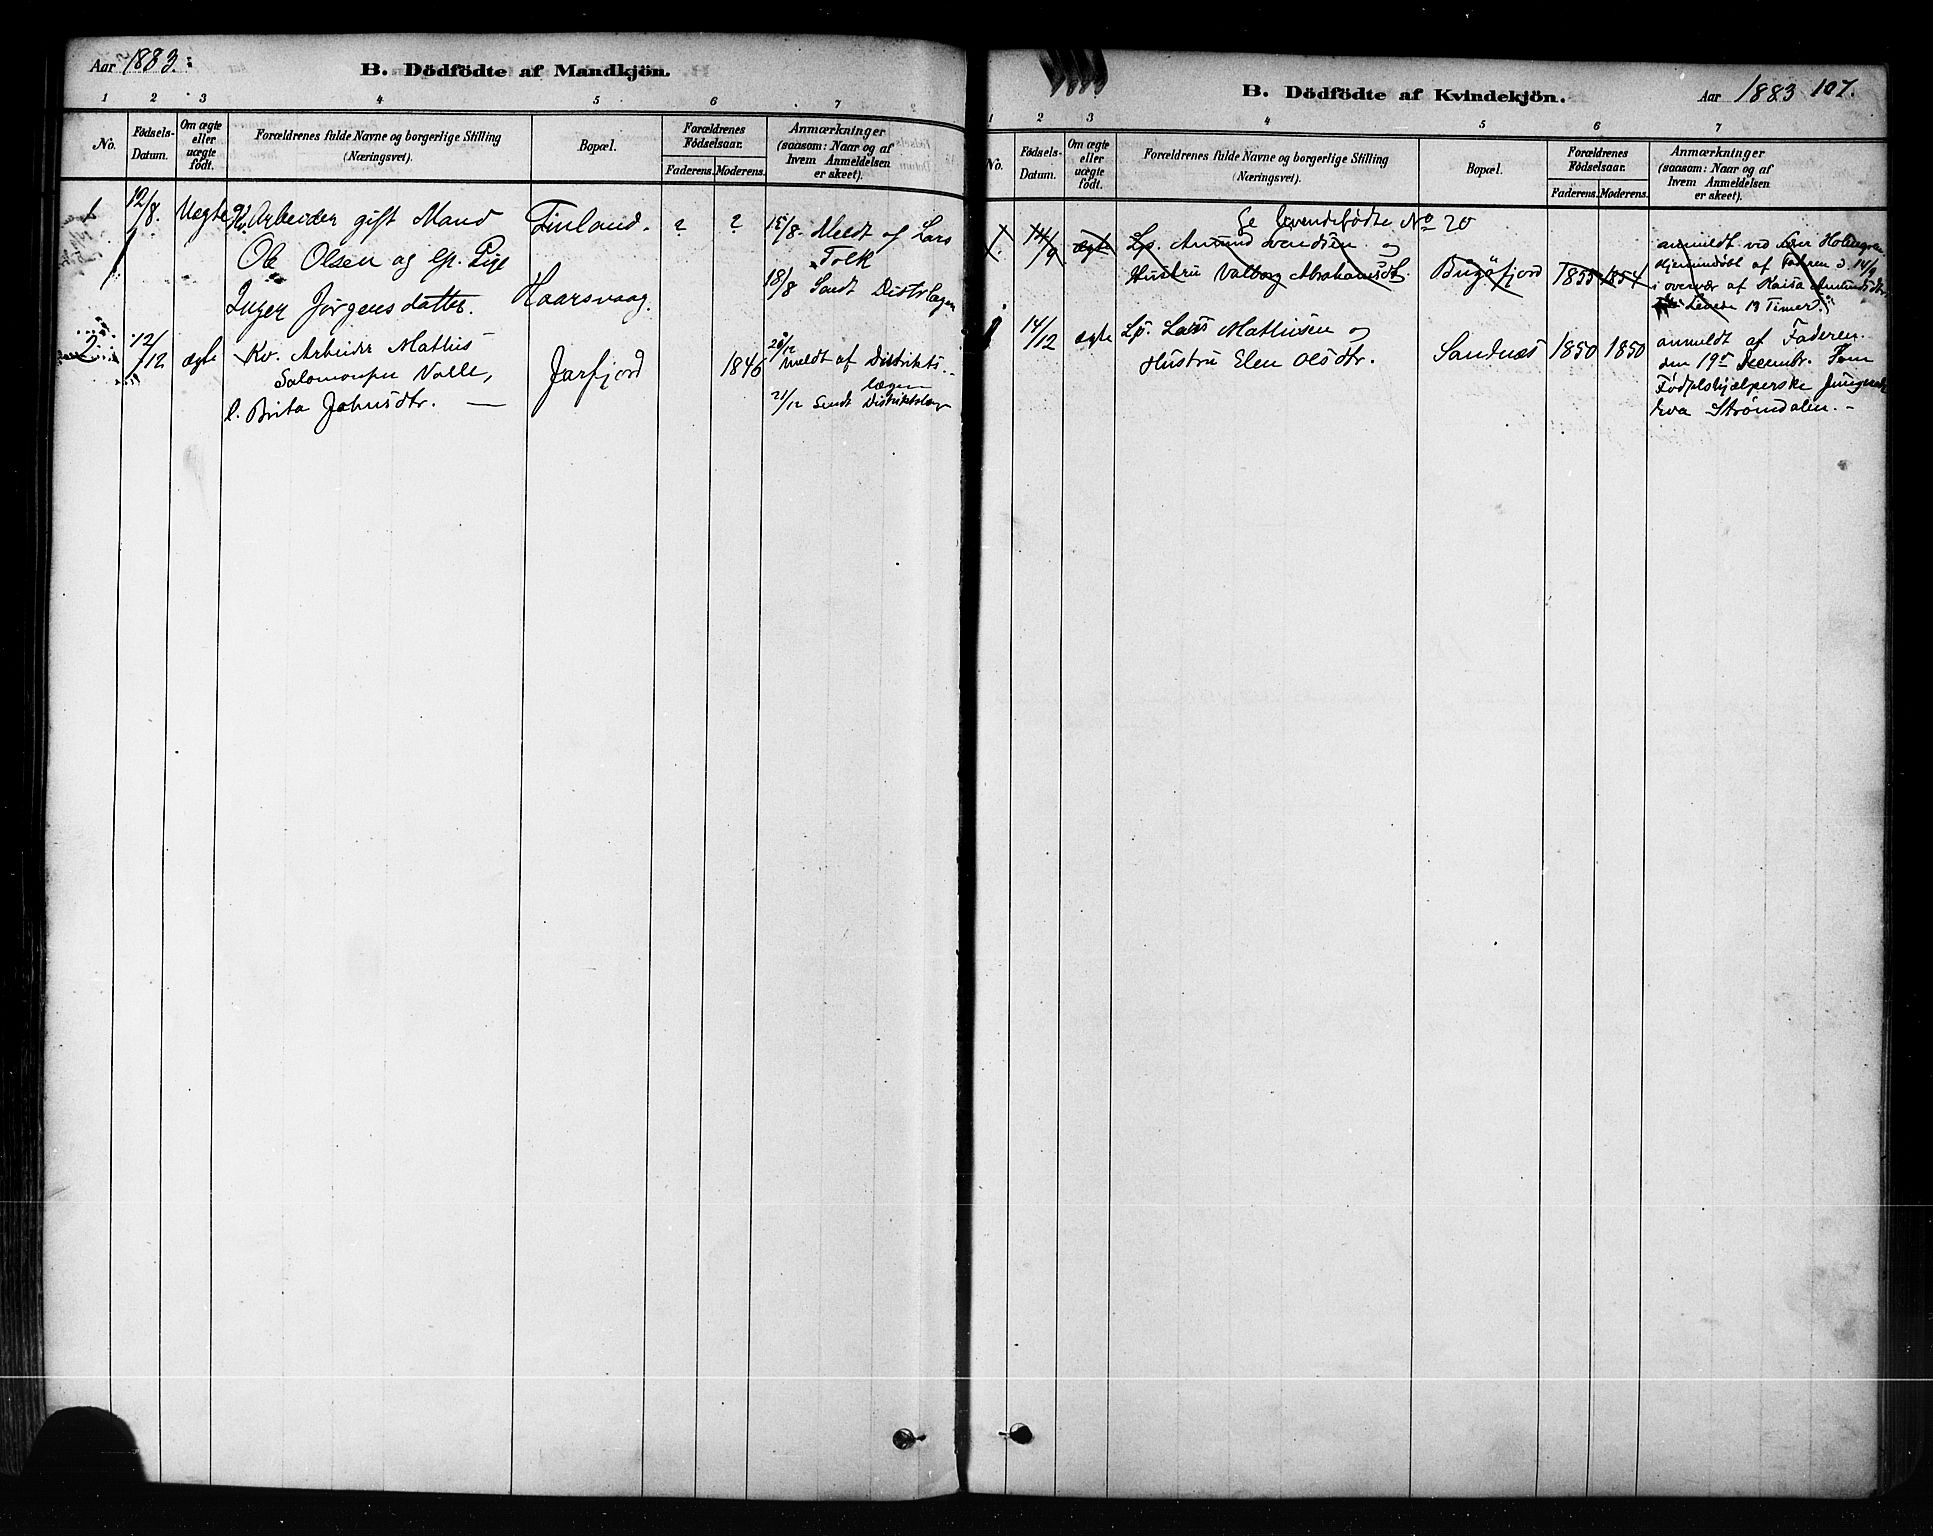 Aar 1883.
B. Dödfödte af Mandkjön.
1 2 3 4 5 6 7
No.
Födsels-Datum.
Om ægte eller uægte födt.
Forældrenes fulde Navne og borgerlige Stilling
(Næringsvei).
Bopæl.
Forældrenes Födselsaar.
Faderens. Moderens.
Anmærkninger
(saasom: Naar og af
hvem Anmeldelsen
er skeet).
1 12/8. Uegte Kv. Arbeider gift Mand Finland. ? ? 15/8. Meldt af Lars
Ole Olsen og lp. Pige Folk
Inger Jørgensdatter. Haarsvaag. 18/8 Sendt Distslægen
2 12/12 ægte Kv. Arbeider Mathis Jarfjord 1846 20/12 Meldt af Distrikts-
Salomonsen Valle, lægen
l. Brita Johnsdtr. — 21/12 Sendt Distriktslæg
1883
B. Dödfödte af Kvindekjön.
Aar 1883 107.
1 2 3 4 5 6 7
No.
Födsels-Datum.
Om ægte eller uægte födt.
Forældrenes fulde Navne og borgerlige Stilling
(Næringsvei).
Bopæl.
Forældrenes Födselsaar.
Faderens. Moderens.
Anmærkninger
(saasom: Naar og af
hvem Anmeldelsen
er skeet).
Se levendefødte No 20
1. 14/9 ægte Lp. Amund Svendsen og anmeldt ved Holmgren
Hustru Valborg Abrahamsdt. Bugøfjord 1855 1854 Hjemmedøbt af Faderen d. 14/9
i overvær af Kaisa Amundsdtr
Levede 13 Timer.
1 14/12 ægte Lp. Lars Mathisen og Sandnæs 1850 1850 anmeldt af Faderen
Hustru Elen Olsdtr. den 19de Decembr. Som
Fødselshjælperske
Eva Strømdalen. —